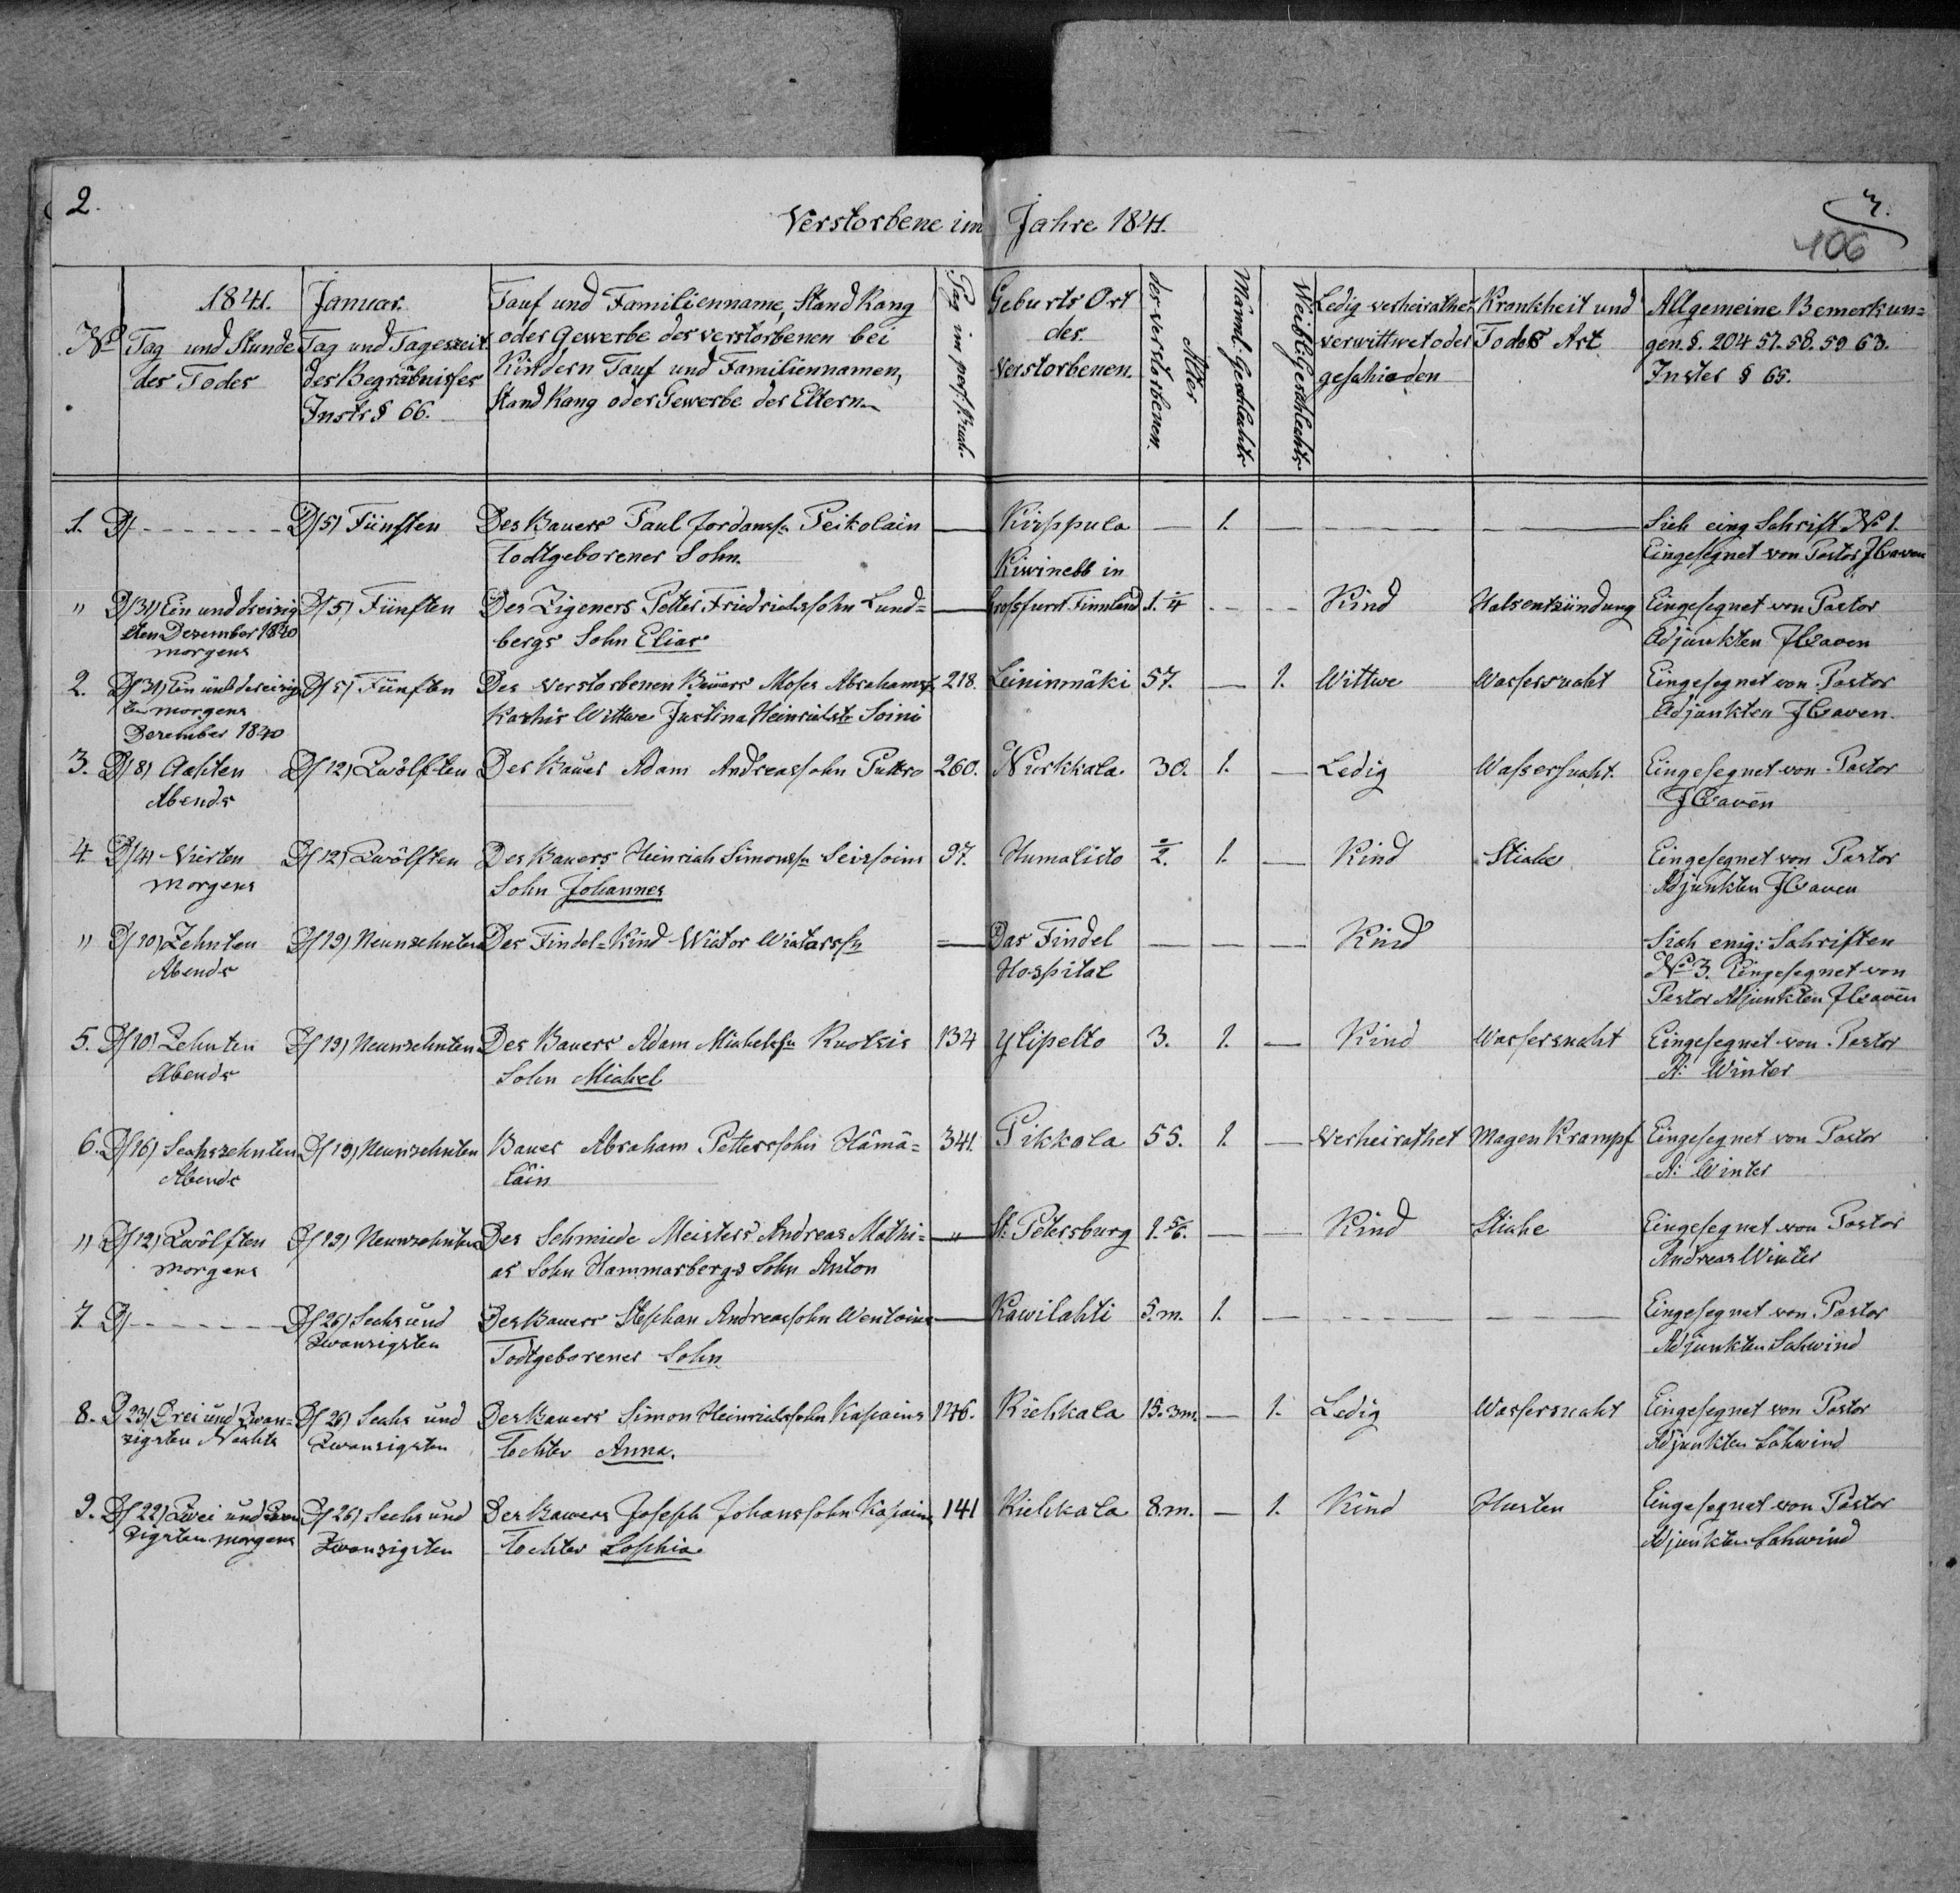 2.
3.
106
Verstorbene im Jahre 1841.
No
1841.
Tag und Stunde
des Todes
Januar.
Tag und Tageszeit
des Begräbnisses
Instr § 66.
Tauf und Familienname, Stand Rang
oder Gewerbe des verstorbenen bei
Kindern Tauf und Familiennamen,
Stand Rang oder Gewerbe der Eltern
Pag im pers. Buch
Geburts Ort
des
verstorbenen.
Alter
des verstorbenen.
Männl: Geschlechts
Weibl: geschlechts
Ledig verheirathet
verwittwet oder
geschieden
Krankheit und
Todes Art
Allgemeine Bemerkun=
gen. §. 204 57. 58. 59 63.
Instr § 65.
1. D/ - - - - - - D/5) Fünften Des Bauers Paul Jordanss. Peikolain — Kirppula — 1. — — — Sieh eing Schrift No 1.
Todtgeborener Sohn. Eingesegnet von Pastor
Kiwinebb in
" D/31) Ein und dreizig D/5) Fünften Des Zigeners Petter Friedrichssohn Lund= — Grossfurst Finnland 1.¼ - - Kind Halsentzündung Eingesegnet von Pastor
sten Dezember 1840 bergs Sohn Elias Adjunkten
morgens
2. D/31) Ein und dreizig D/5) Fünften Des verstorbenen Bauers Moses Abrahamss. 218. Leininmäki 57. — 1. Wittwe Wassersucht Eingesegnet von Pastor
ten morgens Wittwe Justina Heinrichstr Soini Adjunkten
Dezember 1840
3. D/8) Achten D/12) Zwölften Der Bauer Adam Andreassohn Puttro 260. Nurkkala. 30. 1. — Ledig Wassersucht. Eingesegnet von Pastor
Abends
4. D/4) Vierten D/12) Zwölften Des Bauers Heinrich Simonss. 97. Humalisto 1. — Kind Stiche Eingesegnet von Pastor
morgens Sohn Johannes Adjunkten
" D/10) Zehnten D/19) Neunzehnten Des Findel=Kind Wictor Wictorss. — Das Findel — — — Kind Sieh enig: Schriften
Abends Hospital No 3. Eingesegnet von
Pastor Adjunkten
5. D/10) Zehnten D/19) Neunzehnten Des Bauers Adam Michelss. 134 Ylipelto 3. 1. — Kind Wassersucht Eingesegnet von Pastor
Abends Sohn Michel A: Winter
6. D/16) Sechszehnten D/19) Neunzehnten Bauer Abraham Petterssohn Hämä= 341. Pikkola 55. 1. — Verheirathet Magen Krampf Eingesegnet von Pastor
Abends läin A: Winter
" D/12) Zwölften D/19) Neunzehnten Des Schmiede Meisters Andreas Mathi= — " St. Petersburg 1.5/6. — — Kind Stiche Eingesegnet von Pastor
morgens as Sohn Hammarbergs Sohn Anton Andreas Winter
7. D/ - - - - - - D/26) Sechs und Des Bauers Stephan Andreassohn Wentoins — Kawilahti 5.m. 1. — - - - - - - Eingesegnet von Pastor
Zwanzigsten Todtgeborener Sohn Adjunkten Schwind
8. D 23) Drei und Zwan= D/26) Sechs und Des Bauers Simon Heinrichssohn Kapains 146. Riehkala 15.3m. — 1. Ledig Wassersucht Eingesegnet von Pastor
zigsten Nachts Zwanzigsten Tochter Anna. Adjunkten Schwind
9. D/22) Zwei und Zwan D/26) Sechs und Des Bauers Joseph Johanssohn Kapains 141 Riehkala 8.m. — 1. Kind Husten Eingesegnet von Pastor
zigsten morgens Zwanzigsten Tochter Sophia. Adjunkten Schwind